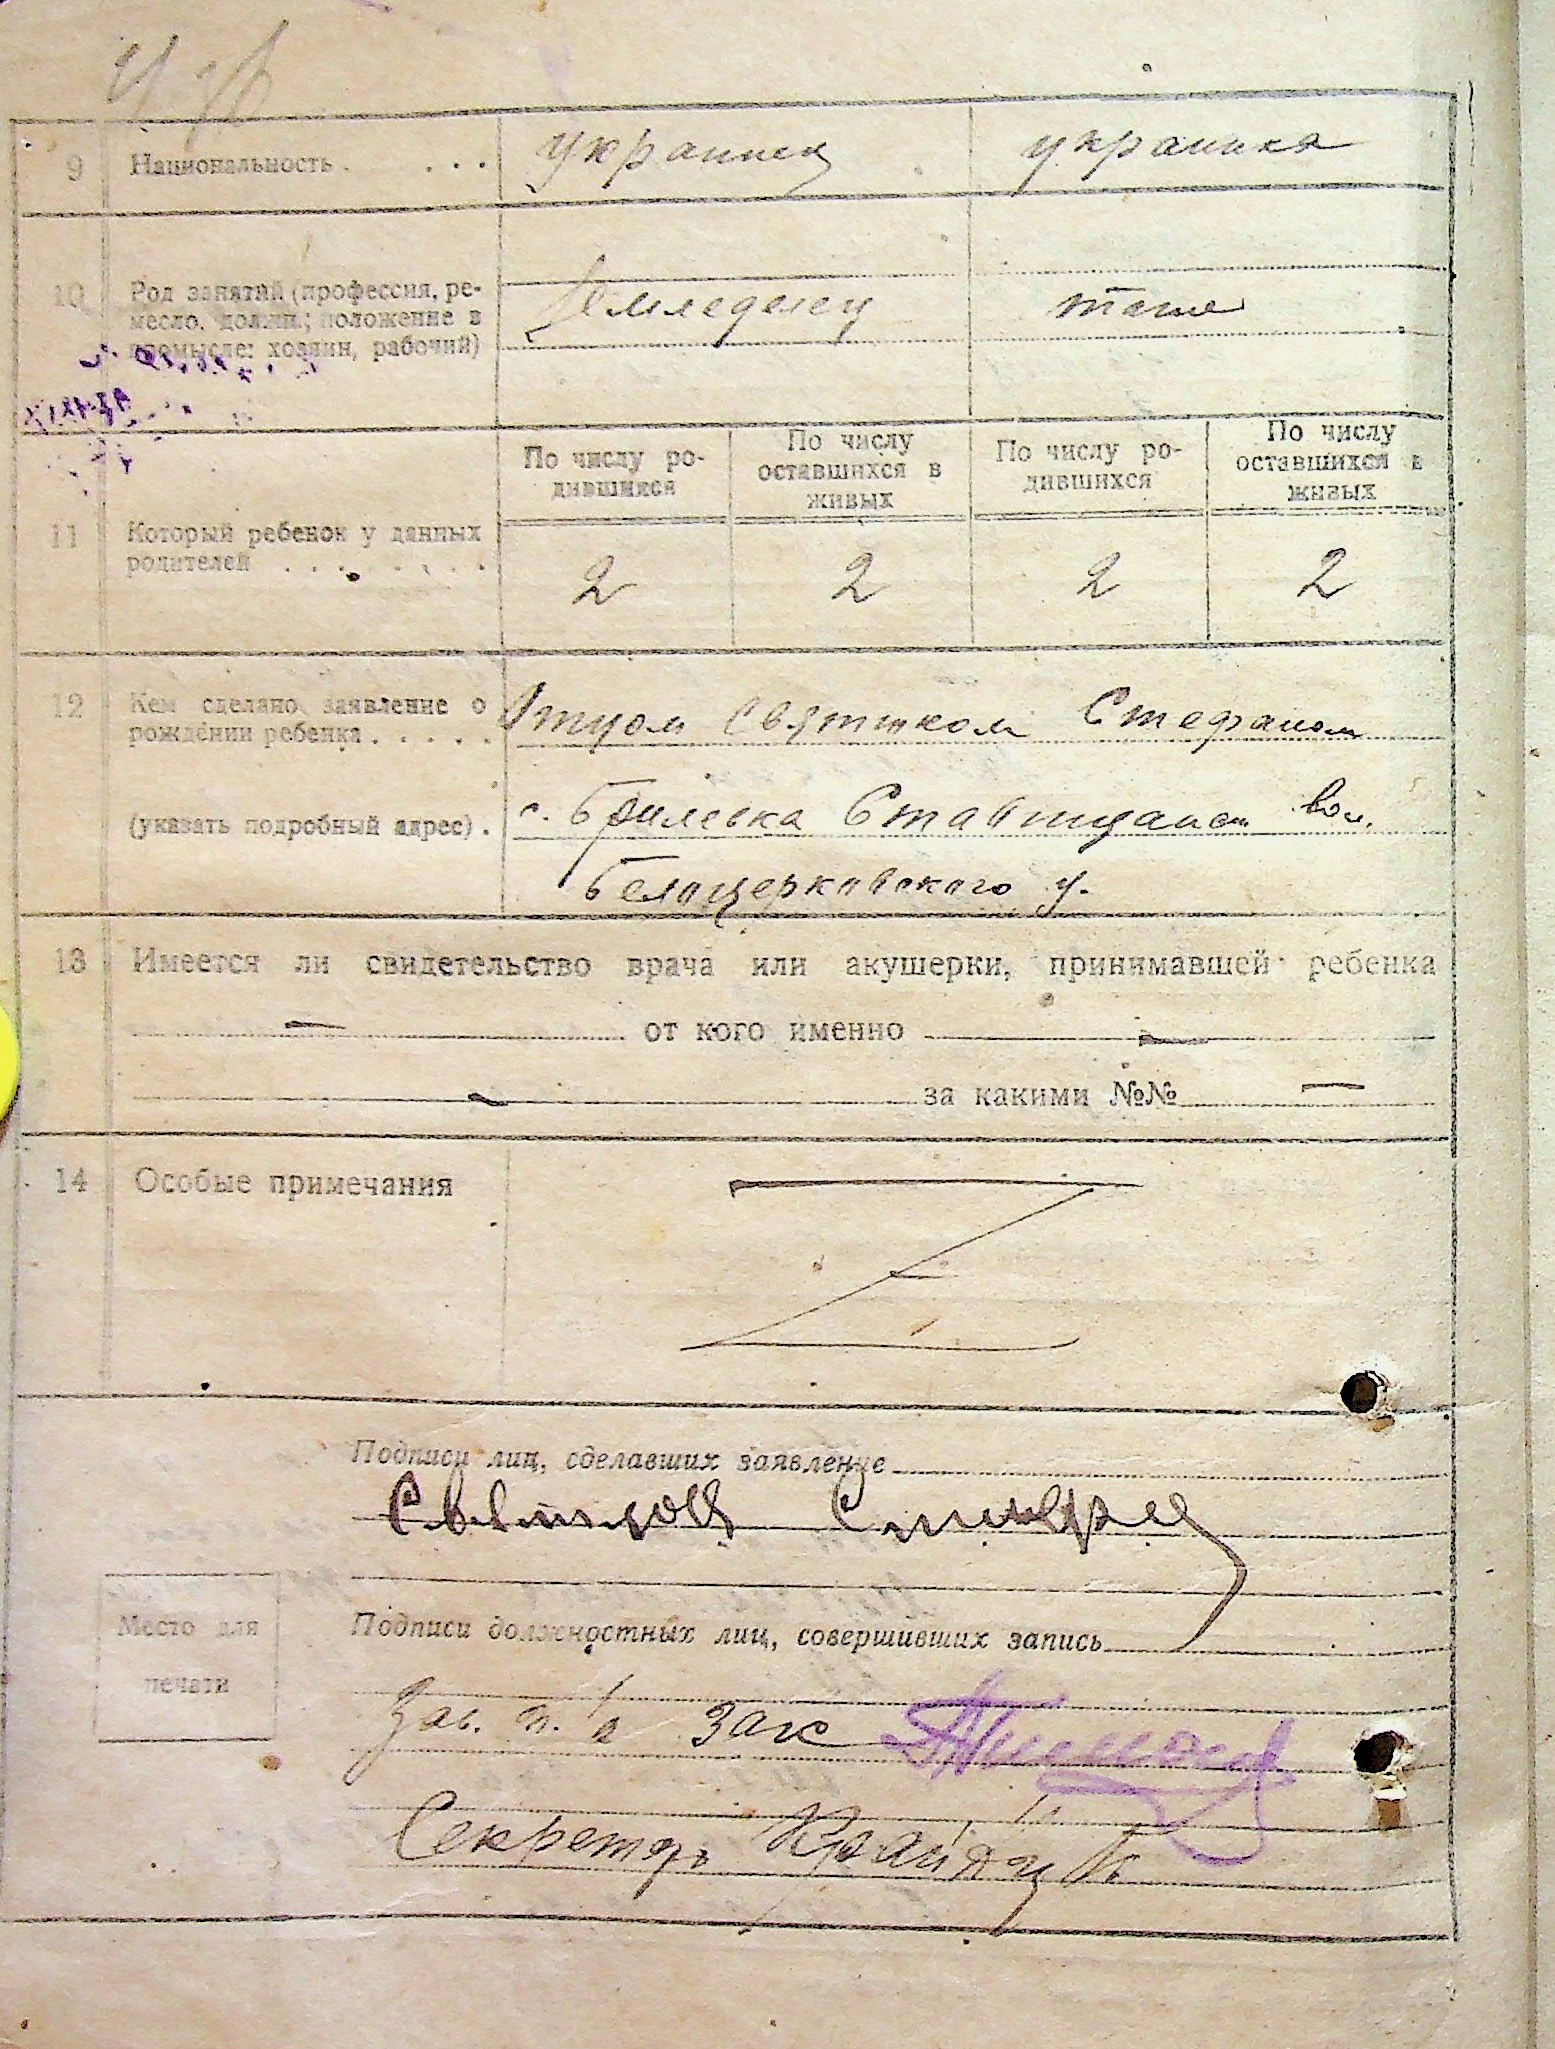 9 Национальность . . . . украинец украинка
10 Род занятий (профессия, ре-
месло, должн.; положение в
промысле: хозяин, рабочий)
Земледелец тоже
11 Который ребенок у данных
родителей . . . . . . .
По числу ро-
дившихся
По числу
оставшихся в
живых
По числу ро-
дившихся
По числу
оставшихся в
живых
2 2 2 2
12 Кем сделано заявление о
рождении ребенка . . . . .
(указать подробный адрес) .
Отцом Святиком Стефаном
с. Брилевка Ставищанск вол.
Белоцерковского у.
13 Имеется ли свидетельство врача или акушерки, принимавшей ребенка
— от кого именно —
— за какими №№ —
14 Особые примечания
Подписи лиц, сделавших заявление
Место для
печати
Подписи должностных лиц, совершивших запись
Зав. п/о загс
Секретарь